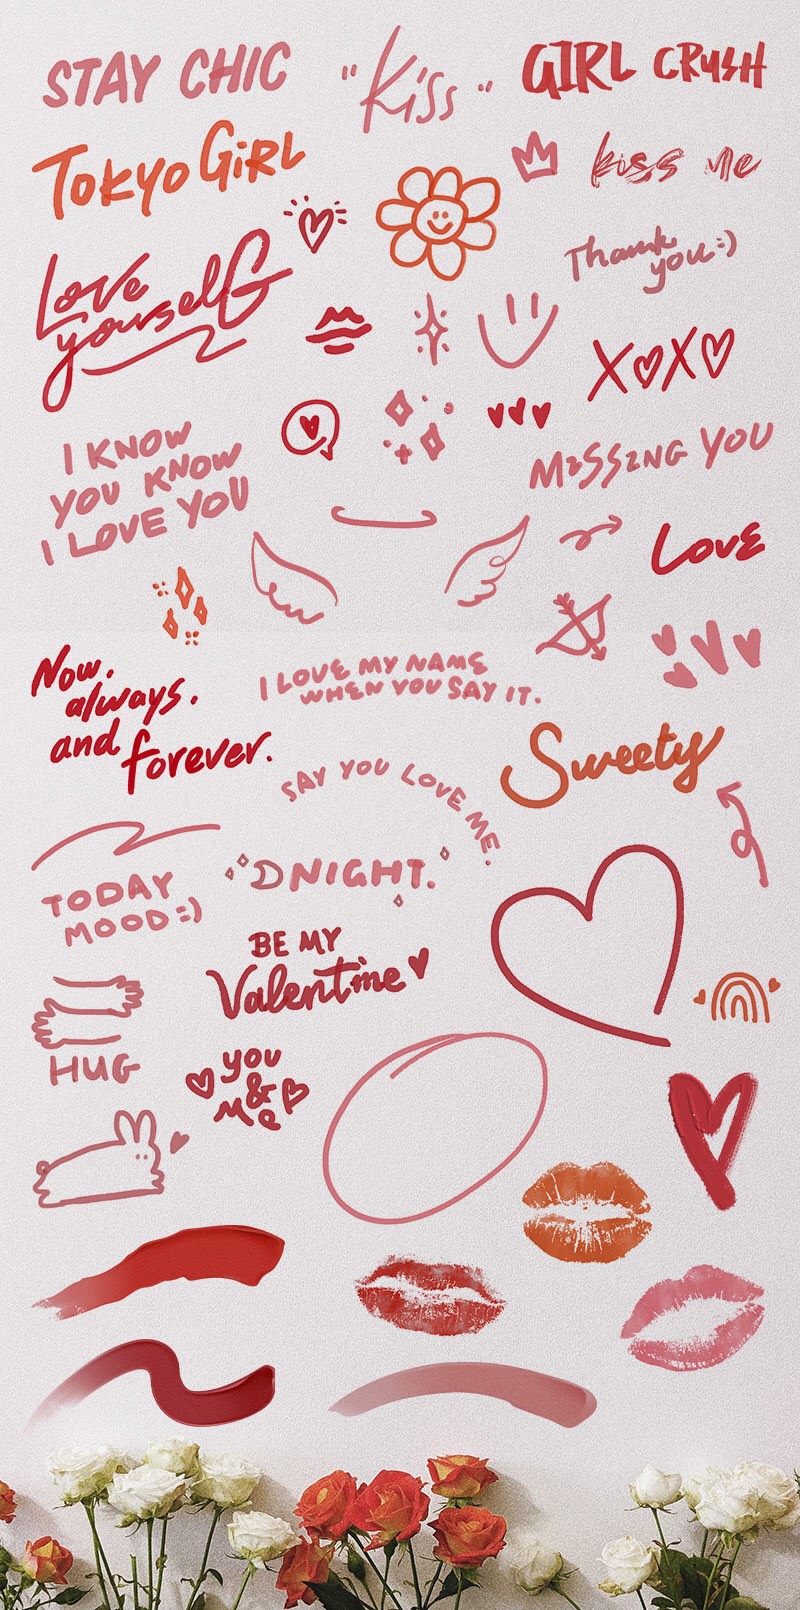 STAY CHIC
"Kiss"
GIRL CRUSH
TOKYO GIRL
kiss me
Love
yourself
Thank
you:)
XOXO
I KNOW
YOU KNOW
I LOVE YOU
MISSING YOU
Love
Now,
always,
and forever.
I LOVE MY NAME
WHEN YOU SAY IT.
Sweety
SAY YOU LOVE ME.
TODAY
MOOD:)
DNIGHT.
BE MY
Valentine
HUG
YOU
&
Me